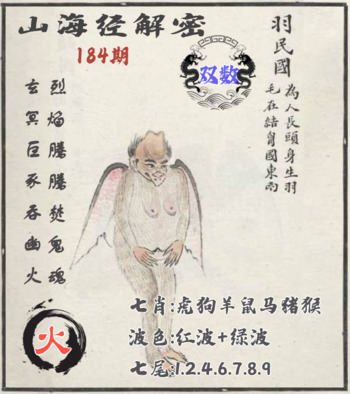 山海经解密
184期
羽民國
為人長頭身生羽
毛在結胷國東南
双数
烈焰騰騰焚鬼魂
玄冥巨豕吞幽火
火
七肖:虎狗羊鼠马猪猴
波色:红波+绿波
七尾:1.2.4.6.7.8.9